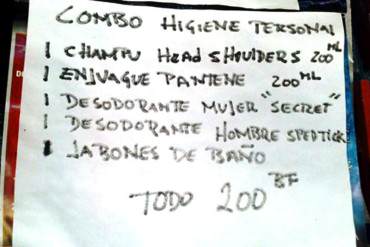 COMBO HIGIENE PERSONAL
1 CHAMPU HEAD SHOULDERS 200 ML
1 ENJUAGUE PANTENE 200 ML
1 DESODORANTE MUJER "SECRET"
1 DESODORANTE HOMBRE SPEDTICK
1 JABONES DE BAÑO
TODO 200 BF